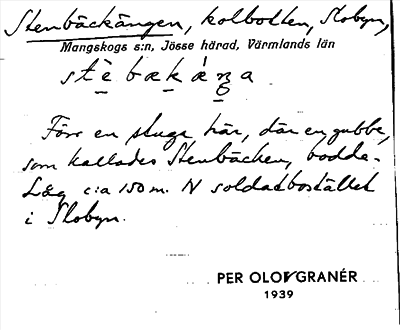 Stenbäckängen, kolbotten, Slobyn,
Mangskogs s:n, Jösse härad, Värmlands län
stèbækáŋa
Förr en stuga här, där en gubbe,
som kallades Stenbäcken, bodde.
Låg c:a 150 m. N soldatbostället
i Slobyn.
PER OLOF GRANÉR
1939